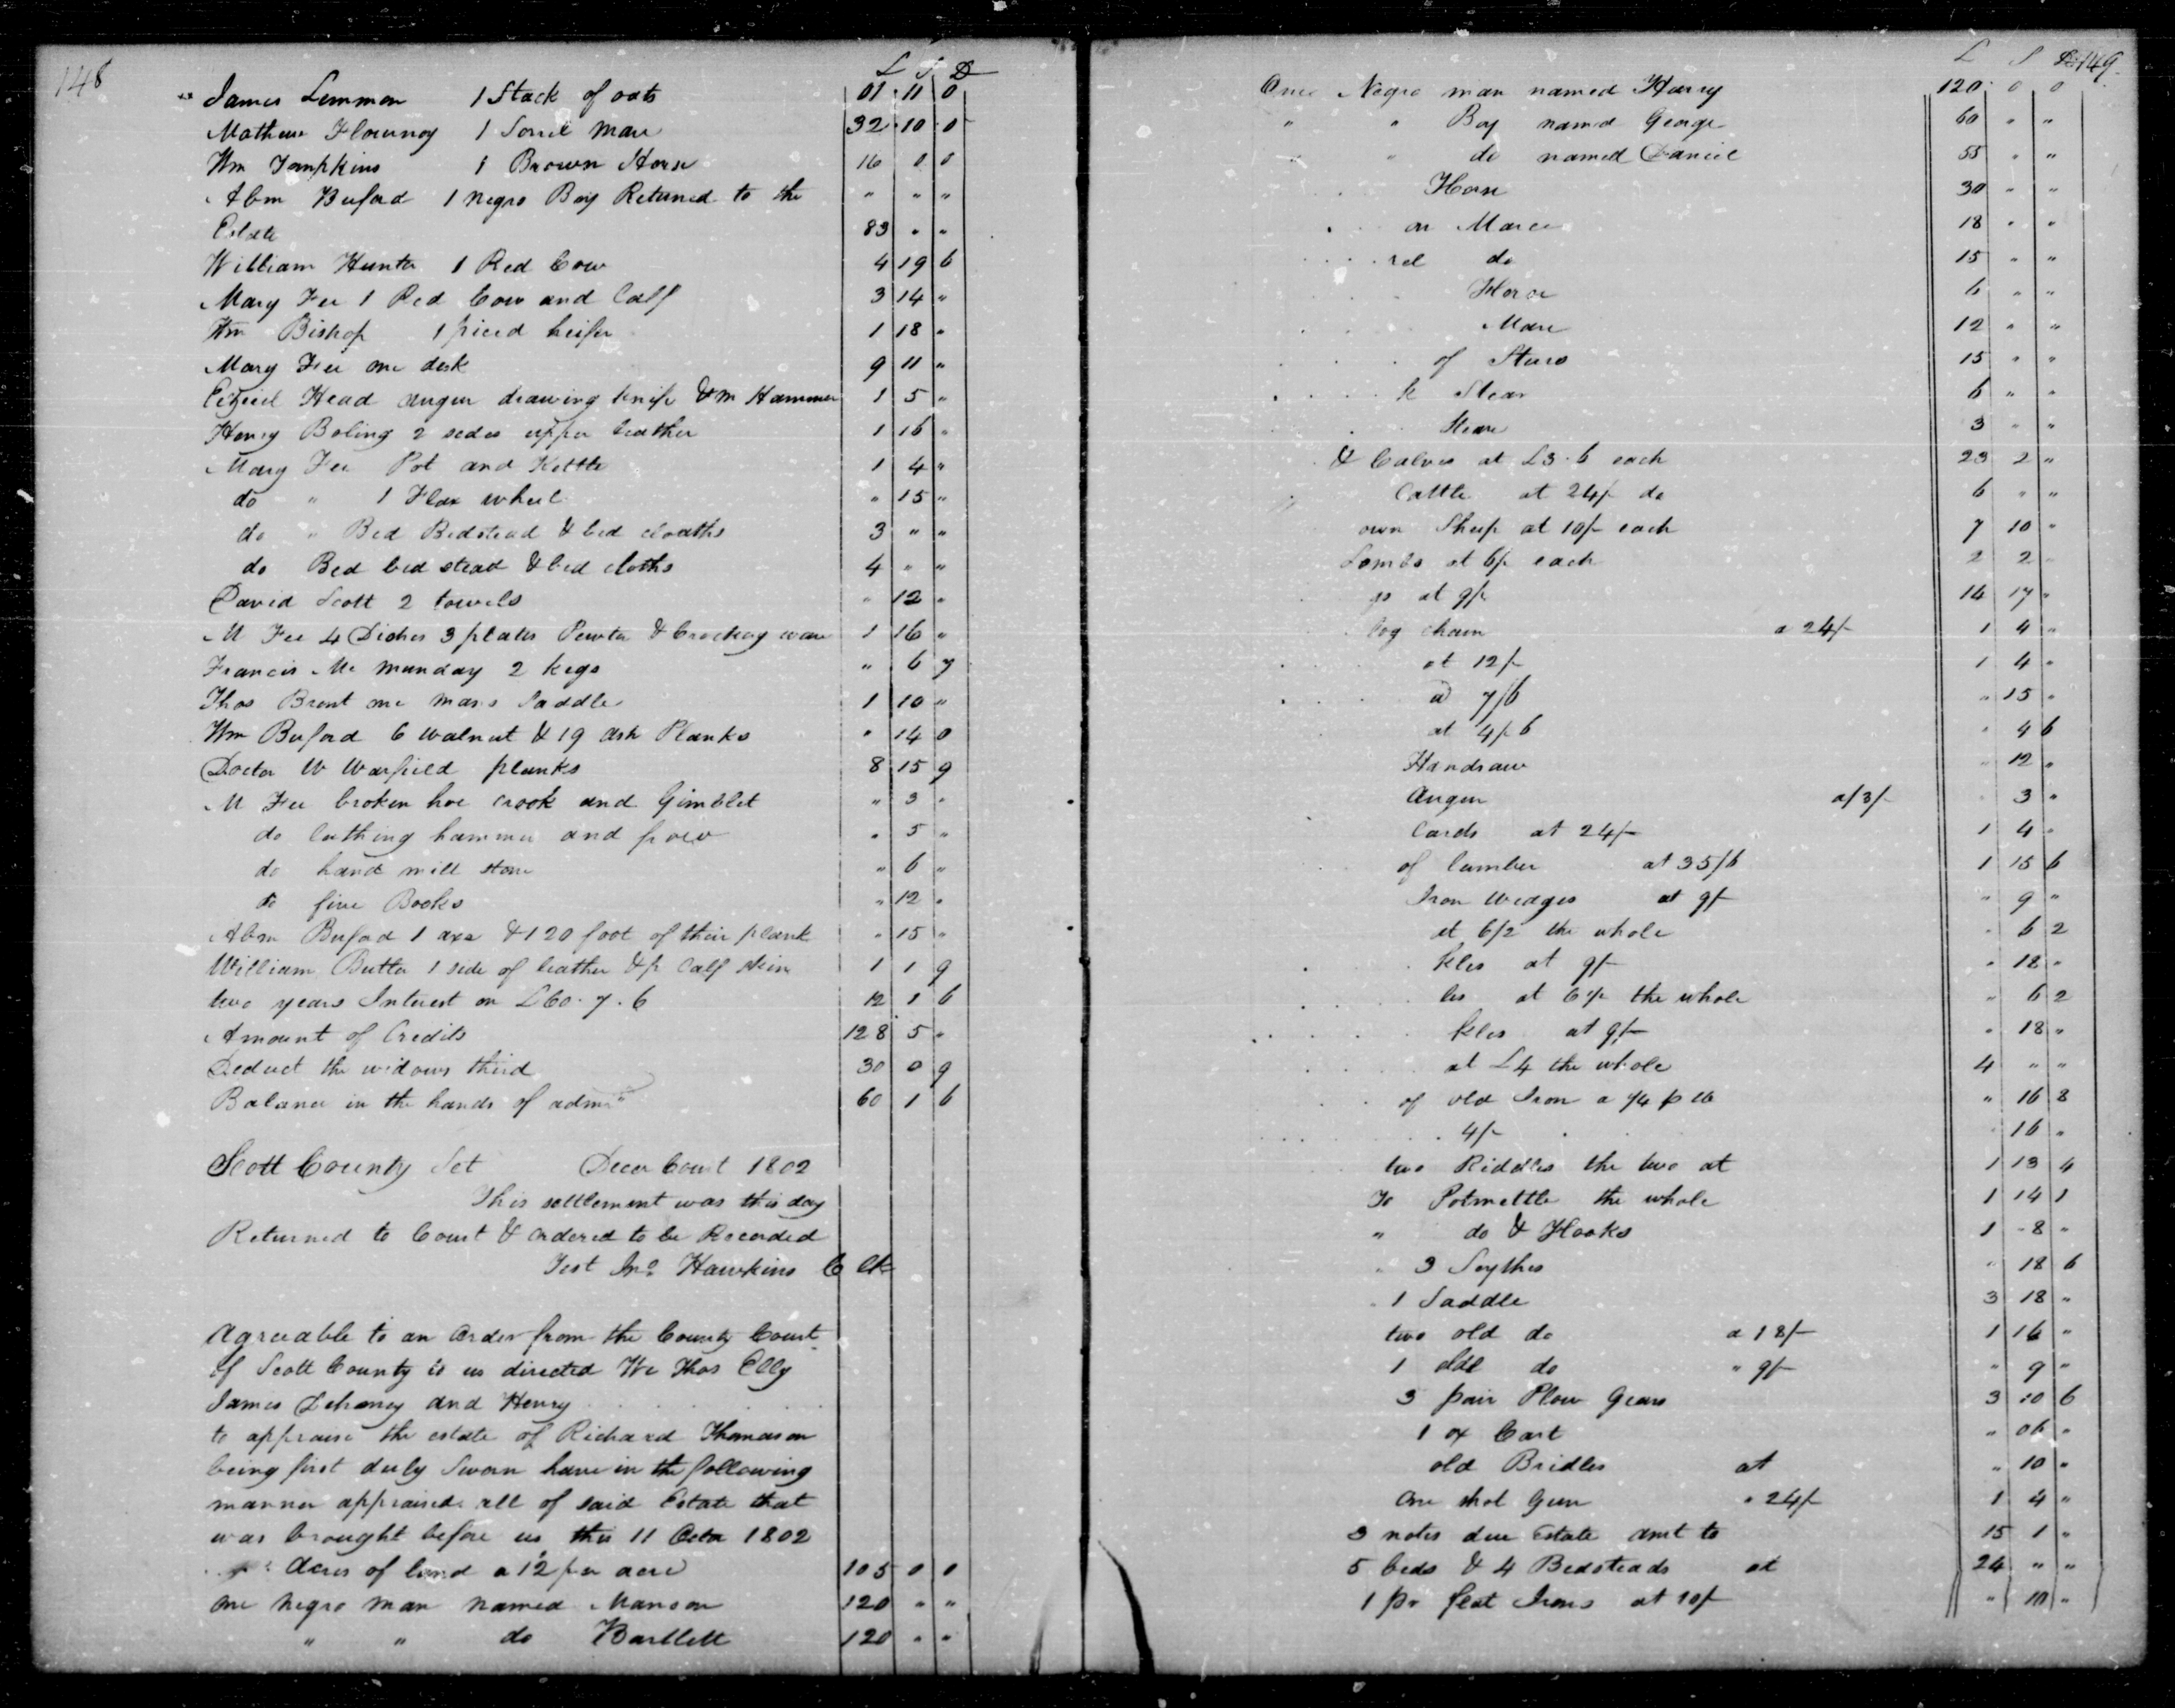 148
L S D
James Lemmon 1 Stack of oats 01 11 0
Mathew Flournoy 1 Sorrel Mare 32 10 0
Wm Tompkins 1 Brown Horse 16 0 0
Abm Buford 1 negro Boy Returned to the " " "
Estate 83 " "
William Hunter 1 Red Cow 4 19 6
Mary Fee 1 Red Cow and Calf 3 14 "
Wm Bishop 1 piced heifer 1 18 "
Mary Fee one desk 9 11 "
Head auger drawing knife & Hammer 1 5 "
Henry Boling 2 sides upper leather 1 16 "
Mary Fee Pot and Kettle 1 4 "
do " 1 Flax wheel " 15 "
do " Bed Bedstead & bed cloaths 3 " "
do Bed bed stead & bed cloths 4 " "
David Scott 2 towels " 12 "
M Fee 4 Dishes 3 plates Pewter & Crockery ware 1 16 "
Francis Mc Munday 2 kegs " 6 7
Thos Brent one mans Saddle 1 10 "
Wm Buford 6 walnut & 19 ash Planks " 14 0
Doctor W Warfield planks 8 15 9
M Fee broken hoe crook and Gimblet " 3 "
do lathing hammer and frow " 5 "
do hand mill stone " 6 "
do five Books " 12 "
Abm Buford 1 axe & 120 foot of their plank " 15 "
William Butler 1 side of leather & p Calf skin 1 1 9
two years Interest on £60.7.6 12 1 6
Amount of Credits 128 5 "
Deduct the widows third 30 0 9
Balance in the hands of admr 60 1 6
Scott County Sct Decer Court 1802
This settlement was this day
Returned to Court & ordered to be Recorded
Test Jno. Hawkins C Clk
Agreeable to an order from the County Court
of Scott County to us directed We Thos Elly
James Dehoney and Henry
to appraise the estate of Richard Thomason
being first duly Sworn have in the following
manner appraised all of said Estate that
was brought before us this 11 Octo 1802
Acres of land a 12 per acre 105 0 0
one negro man named Manson 120 " "
" " do Bartlett 120 " "
149
L S D
One Negro man named Harry 120 0 0
" " Boy named George 60 " "
" " do named Daniel 55 " "
Horse 30 " "
on Mare 18 " "
rel do 15 " "
Horse 6 " "
Mare 12 " "
of Steers 15 " "
k Stear 6 " "
Steare 3 " "
& Calves at £3.6 each 23 2 "
Cattle at 24/- do 6 " "
own Sheep at 10/- each 7 10 "
Lambs at 6/- each 2 2 "
gs at 9/- 14 17 "
log chain a 24/- 1 4 "
at 12/- 1 4 "
a 7/6 " 15 "
at 4/-6 " 4 6
Handsaw " 12 "
Auger a/3/- " 3 "
Cards at 24/- 1 4 "
of lumber at 35/6 1 15 6
Iron Wedges at 9/- " 9 "
at 6/2 the whole " 6 2
kles at 9/- " 18 "
les at 6/2 the whole " 6 2
kles at 9/- " 18 "
at £4 the whole 4 " "
of old Iron a /4 p lb " 16 8
4/- " 16 "
two Riddles the two at 1 13 4
To Potmettle the whole 1 14 1
" do & Hooks 1 8 "
" 3 Scythes " 18 6
" 1 Saddle 3 18 "
two old do a 18/- 1 16 "
1 old do " 9/- " 9 "
3 pair Plow Gears 3 10 6
1 ox Cart " 06 "
old Bridles at " 10 "
One shot Gun " 24/- 1 4 "
3 notes due Estate amt to 15 1 "
5 beds & 4 Bedsteads at 24 " "
1 pr flat Irons at 10/- " 10 "